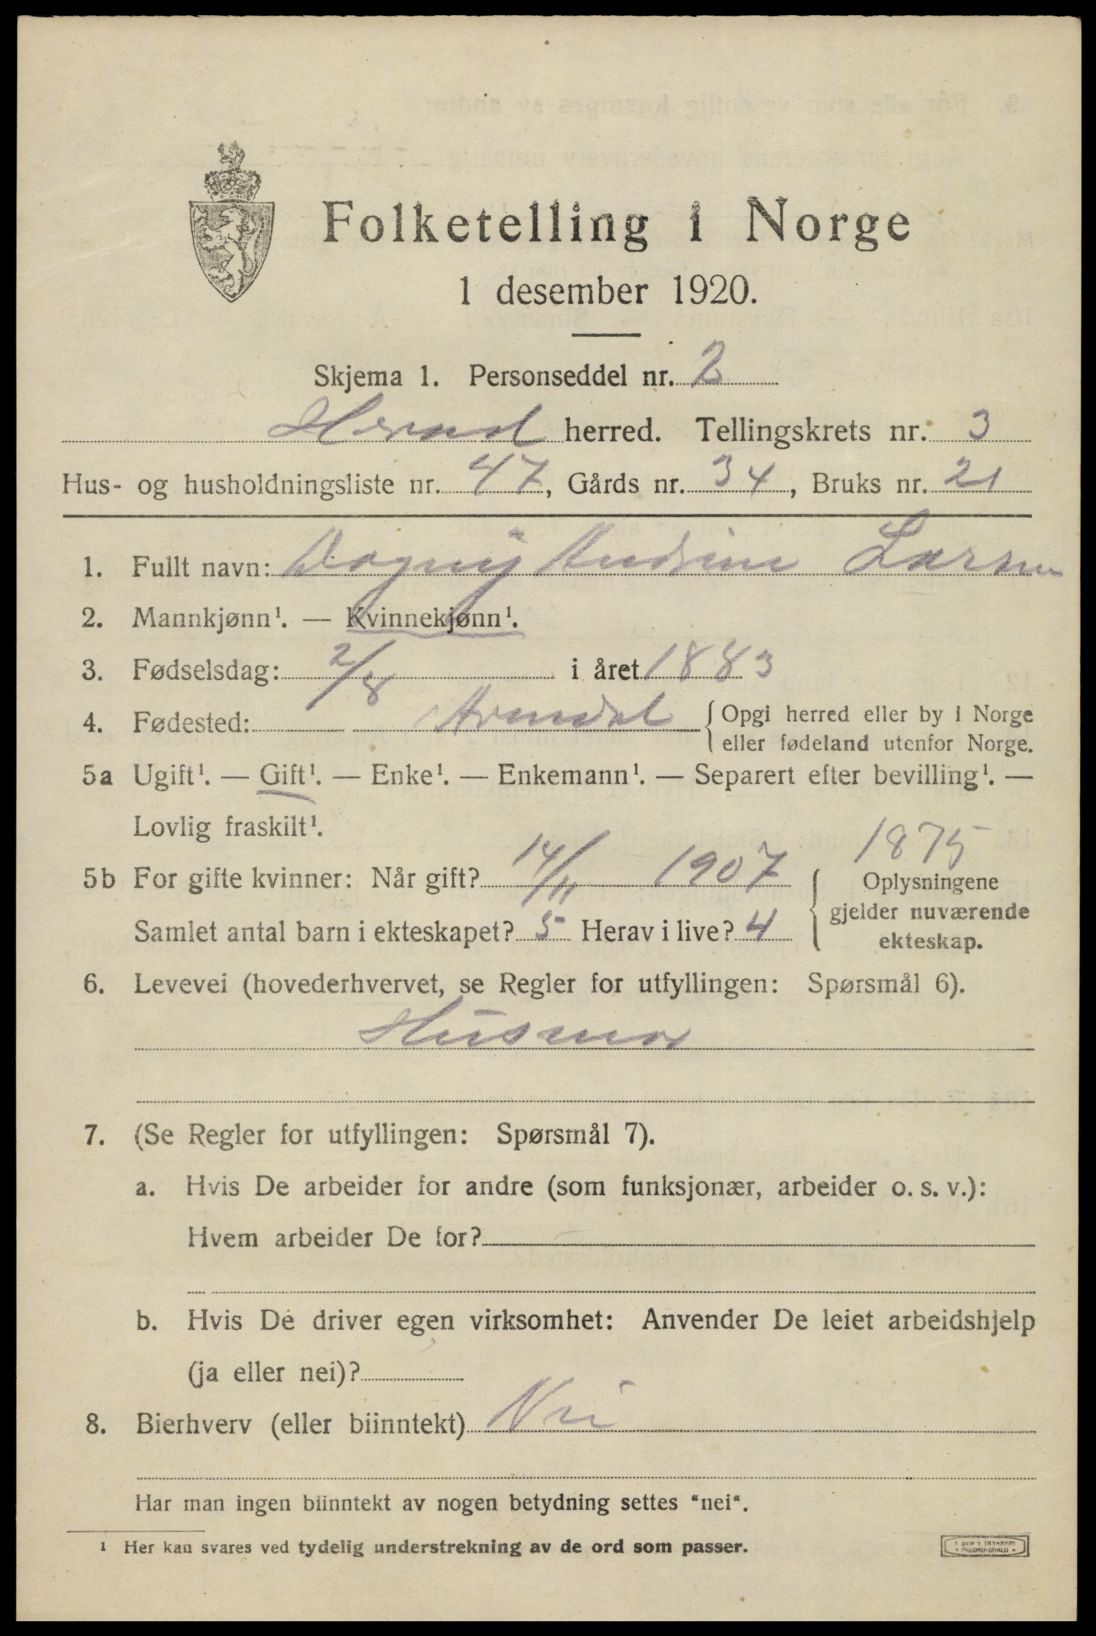 Folketelling i Norge
1 desember 1920.
Skjema 1. Personseddel nr. 2
Herad herred. Tellingskrets nr. 3
Hus- og husholdningsliste nr. 47, Gårds nr. 34, Bruks nr. 21
1. Fullt navn: Dagny Andrine Larsen
2. Mannkjønn¹. — Kvinnekjønn¹.
3. Fødselsdag: 2/8 i året 1883
4. Fødested: Arendal {Opgi herred eller by i Norge
eller fødeland utenfor Norge.
5a Ugift¹. — Gift¹. — Enke¹. — Enkemann¹. — Separert efter bevilling¹. —
Lovlig fraskilt¹.
1875
5b For gifte kvinner: Når gift? 14/11 1907 { Oplysningene
gjelder nuværende
Samlet antal barn i ekteskapet? 5 Herav i live? 4
ekteskap.
6. Levevei (hovederhvervet, se Regler for utfyllingen: Spørsmål 6).
Husmor
7. (Se Regler for utfyllingen: Spørsmål 7).
a. Hvis De arbeider for andre (som funksjonær, arbeider o. s. v.):
Hvem arbeider De for?
b. Hvis De driver egen virksomhet: Anvender De leiet arbeidshjelp
(ja eller nei)?
8. Bierhverv (eller biinntekt) Nei
Har man ingen biinntekt av nogen betydning settes "nei".
¹ Her kan svares ved tydelig understrekning av de ord som passer.